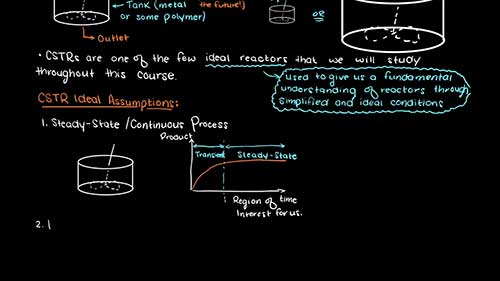 Tank (metal the future!)
or some polymer) or
Outlet
• CSTRs are one of the few ideal reactors that we will study
throughout this course.
used to give us a fundamental
understanding of reactors through
simplified and ideal conditions
CSTR Ideal Assumptions:
1. Steady-State / Continuous Process
Product
Transient Steady-State
time
Region of
Interest for us.
2. I